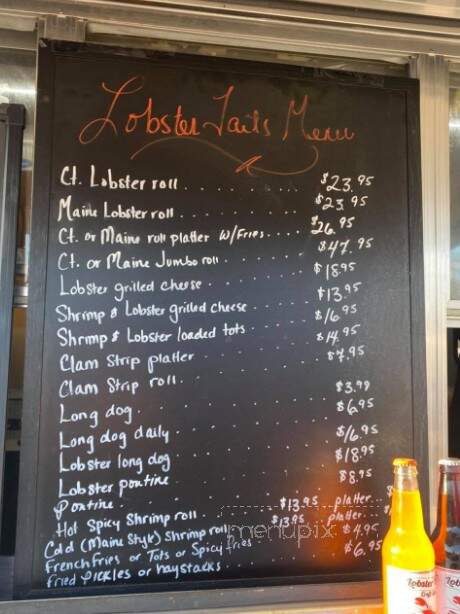 Lobster Tails Menu
Ct. Lobster roll . . . . . . . . . $23.95
Maine Lobster roll . . . . . . . . $23.95
Ct. or Maine roll platter w/Fries . . . . $26.95
Ct. or Maine Jumbo roll . . . . . $47.95
Lobster grilled cheese . . . . . . $18.95
Shrimp & Lobster grilled cheese . . . . $13.95
Shrimp & Lobster loaded tots . . . . $16.95
Clam Strip platter . . . . . . . $14.95
Clam Strip roll . . . . . . . . $7.95
Long dog . . . . . . . . . $3.99
Long dog daily . . . . . . . $6.95
Lobster long dog . . . . . . $16.95
Lobster poutine . . . . . . . $18.95
Poutine . . . . . . . . . $8.95
Hot Spicy Shrimp roll . . . . . $13.95 platter . . .
Cold (Maine Style) Shrimp roll . . $13.95 platter . . .
French Fries or Tots or Spicy fries . . . . $4.95
Fried Pickles or haystacks . . . . . $6.95
menupix